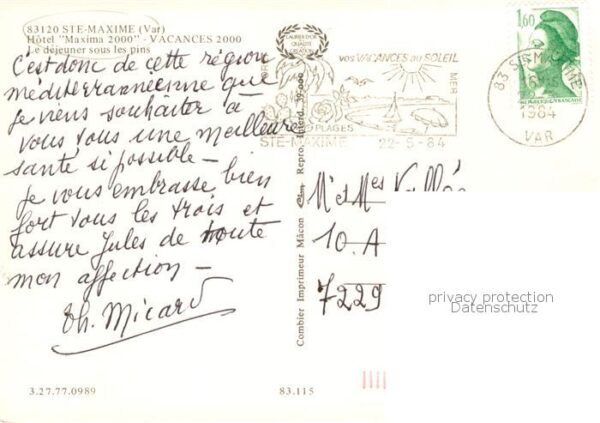 83120 STE-MAXIME (Var)
Hôtel "Maxima 2000" - VACANCES 2000
Le déjeuner sous les pins
C'est donc de cette région
méditerranéenne que
je viens souhaiter à
vous tous une meilleure
santé si possible -
je vous embrasse bien
fort tous les trois et
assure Jules de toute
mon affection -
Th. Micard
3.27.77.0989
83.115
LAURIER D'OR
DE LA
QUALITÉ
CRÉATION
Combier Imprimeur Mâcon Repro. Interd. 39.000
VOS VACANCES AU SOLEIL
MER
PLAGES
STE-MAXIME
22-5-84
1,60
REPUBLIQUE FRANÇAISE
83 STE MAXIME
1984
VAR
M et Mes Vallé
10. A
7229
privacy protection
Datenschutz